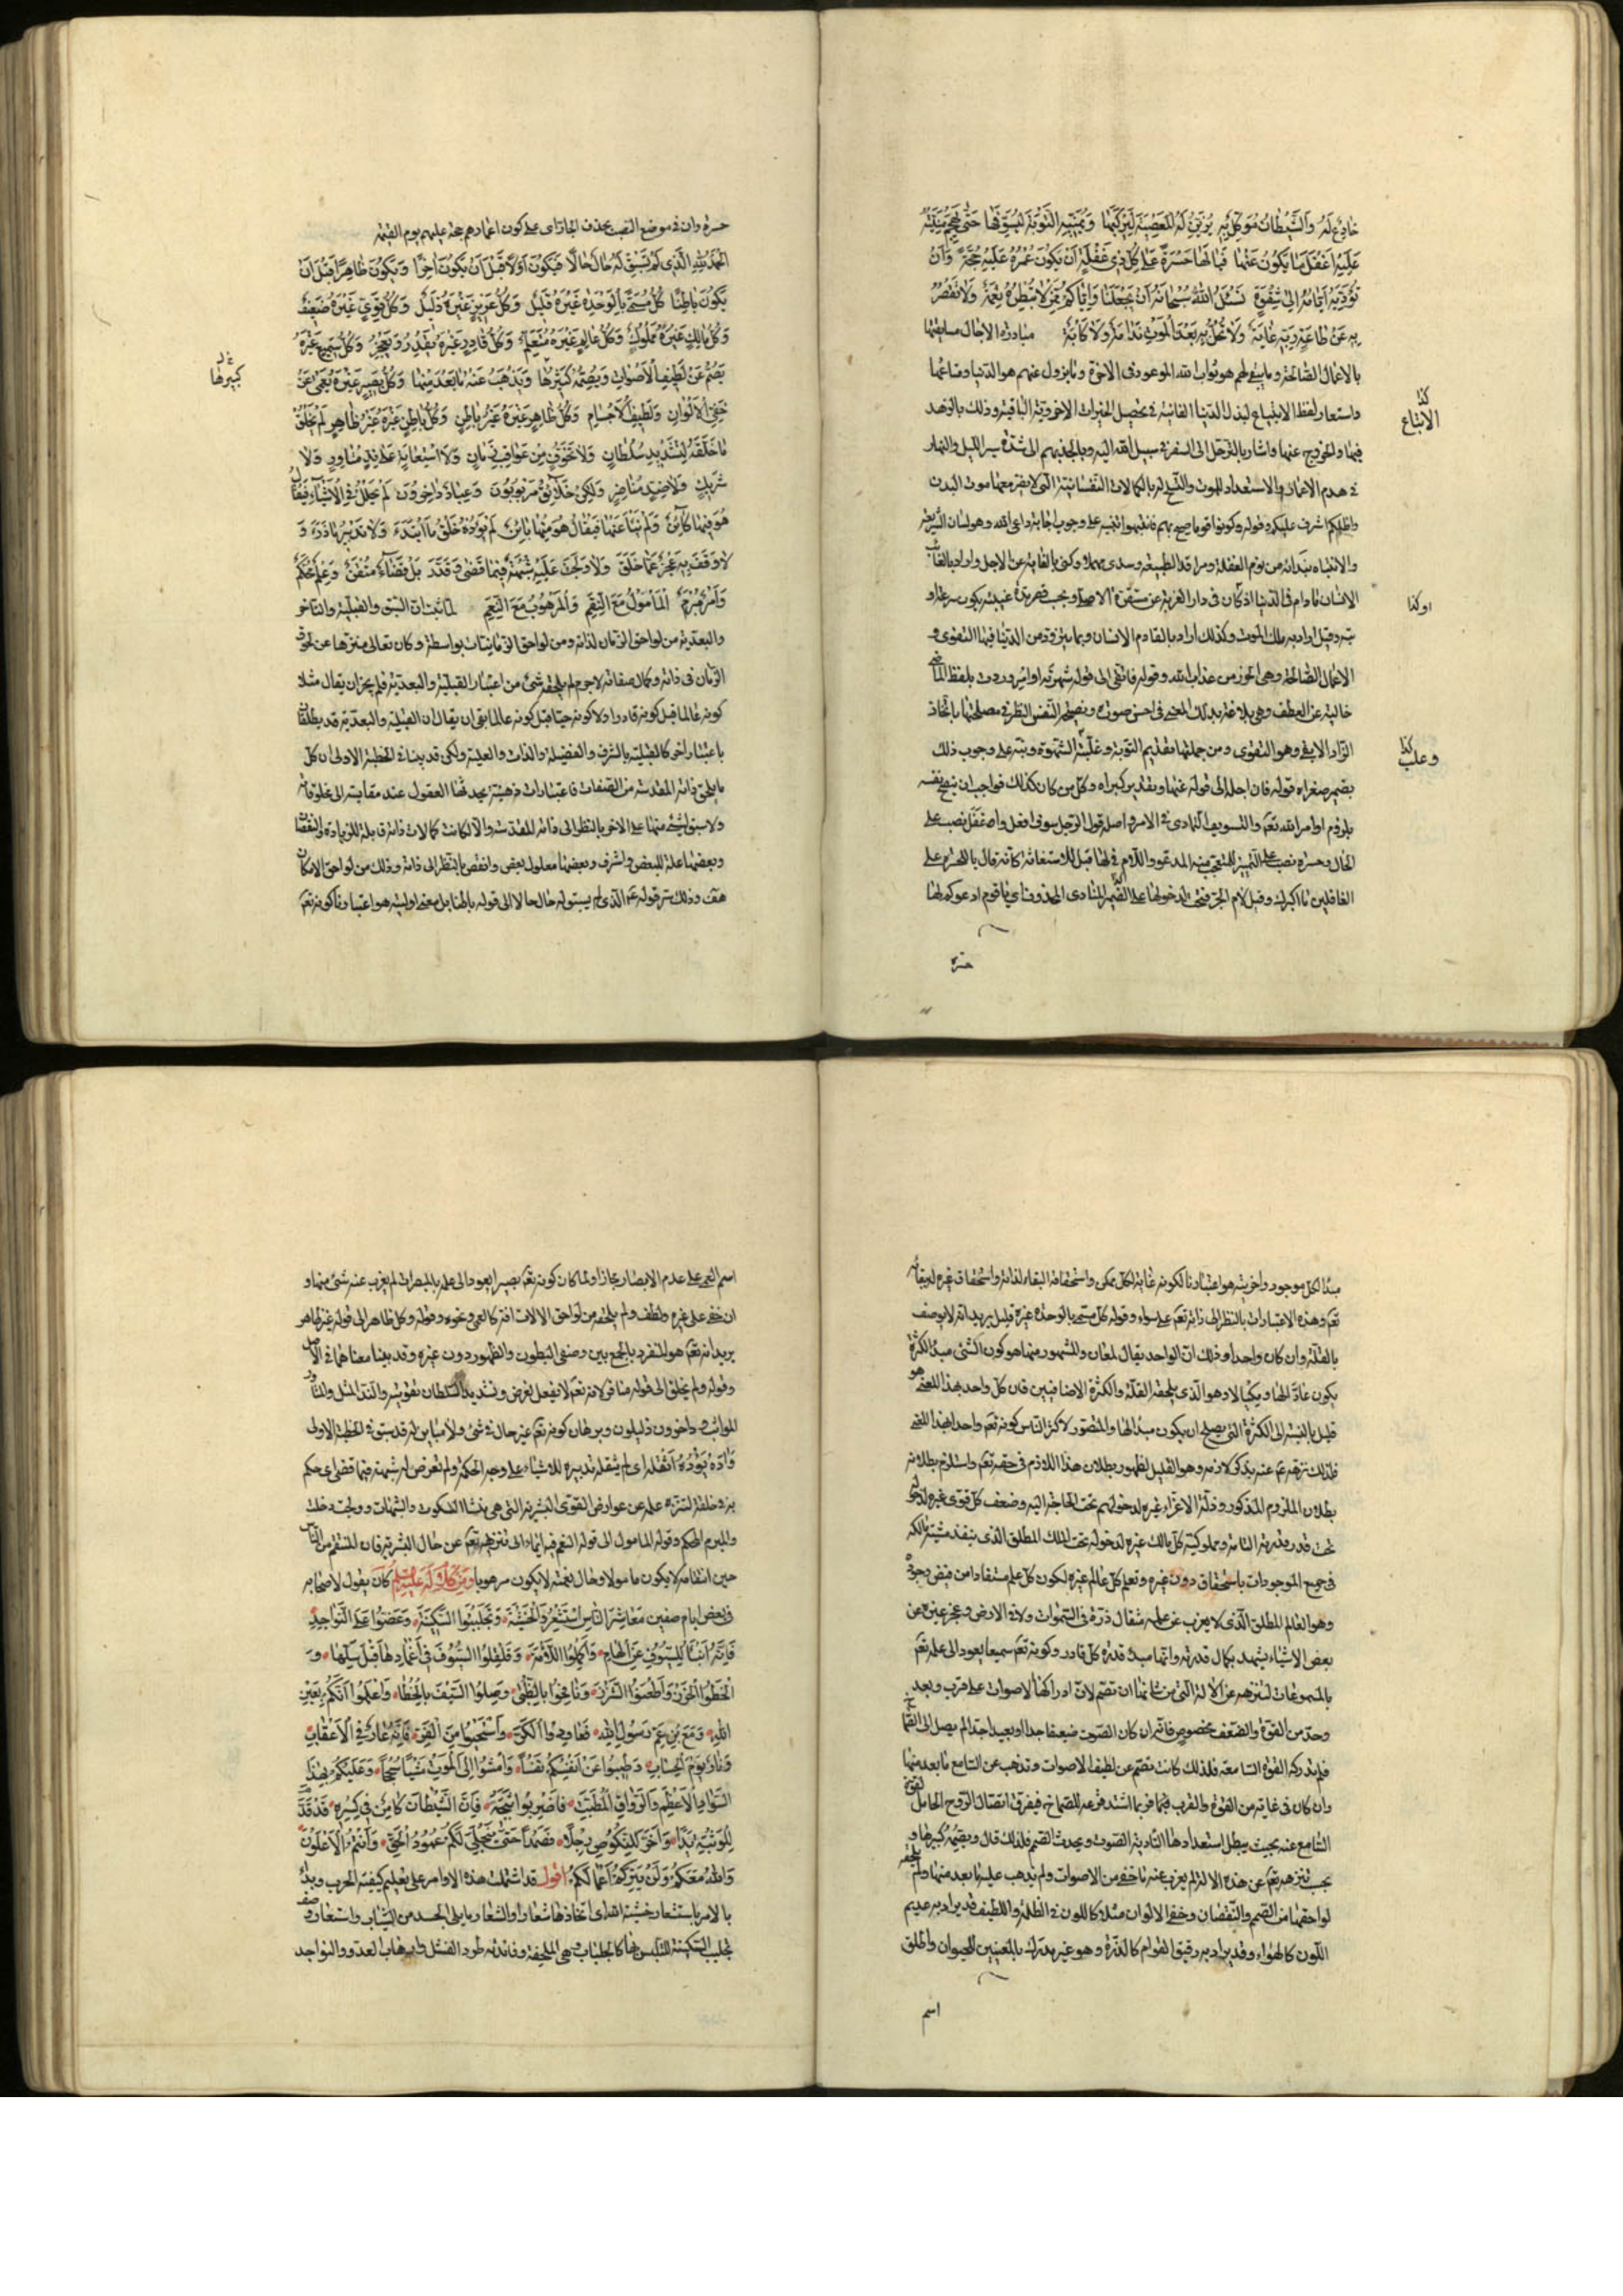 خادع له والشيطان موكل به يزين له المعصية ليركبها ويمنيه التوبة ليسوفها حتى تهجم منيته
عليه اغفل ما يكون عنها فيا لها حسرة على كل ذي غفلة ان يكون عمره عليه حجة وان
تؤديه ايامه الى شقوة نسئل الله سبحانه ان يجعلنا واياكم ممن لا تبطره نعمة ولا تقصر
به عن طاعة ربه غاية ولا تحل به بعد الموت ندامة ولا كابة مبادرة الاجال مسابقتها
بالاعمال الصالحة وما يبقى لهم هو ثواب الله الموعود في الاخرة وما يزول عنهم هو الدنيا ومتاعها
كذا الابتياع
واستعار لفظ الابتياع لبذل الدنيا الفانية في تحصيل الخيرات الاخروية الباقية وذلك بالزهد
فيها والخروج عنها واشار بالترحل الى السفر في سبيل الله اليه وبالجد بهم الى شدة سير الليل والنهار
في هدم الاعمار والاستعداد للموت والتهيؤ له بالكمالات النفسانية التي لا يضر معها موت البدن
واظلكم اشرف عليكم وقوله وكونوا قوما صيح بهم فانتبهوا تنبيه على وجوب اجابة داعي الله وهو لسان الشريعة
والانتباه بندائه من نوم الغفلة ومراقد الطبيعة وسدى مهملا وكنى بالغاية عن الاجل واراد بالغائب
او كذا
الانسان ما دام في الدنيا اذ كان في دار الغربة عن مستقره الاصلي
وقيل اراد به ملك الموت وكذلك اراد بالقادم الانسان وبما يتزود من الدنيا فيها التقوى و
الاعمال الصالحة وهي الحرز من عذاب الله وقوله فاتقى الى قوله شهوته اوامر وردت بلفظ الماضي
خالية عن العطف وهي بلاغة بذلك المعنى في احسن صورة ونصيحة النفس النظر في مصلحتها باتخاذ
كذا وغلب
الزاد الابقى وهو التقوى ومن جملتها تقديم التوبة وغلبة الشهوة ونبه على وجوب ذلك
بضمير صغراه قوله فان اجله الى قوله عنها وتقدير كبراه وكل من كان كذلك فواجب ان ينصح نفسه
بلزوم اوامر الله تعم والتسويف التمادي في الامر واصله قول الرجل سوف افعل واغفل نصب على
الحال وحسرة نصب على التمييز للتعجب منه المدعو واللام في لها قيل للاستغاثة كانه قال يا للحسرة على
الغافلين ما اكبرك وقيل لام الجر فتحت لدخولها على الضمير والمنادى محذوف اي يا قوم ادعوكم لها
حسرة
حسرة وان في موضع النصب بحذف الجار اي على كون اعمارهم حجة عليهم يوم القيمة
الحمد لله الذي لم تسبق له حال حالا فيكون اولا قبل ان يكون اخرا ويكون ظاهرا قبل ان
يكون باطنا كل مسمى بالوحدة غيره قليل وكل عزيز غيره ذليل وكل قوي غيره ضعيف
وكل مالك غيره مملوك وكل عالم غيره متعلم وكل قادر غيره يقدر ويعجز وكل سميع غيره
كبيرها
يصم عن لطيف الاصوات ويصمه كبيرها ويذهب عنه ما بعد منها وكل بصير غيره يعمى عن
خفي الالوان ولطيف الاجسام وكل ظاهر غيره غير باطن وكل باطن غيره غير ظاهر لم يخلق
ما خلقه لتشديد سلطان ولا تخوف من عواقب زمان ولا استعانة على ند مثاور ولا
شريك ولا ضد منافر ولكن خلائق مربوبون وعباد داخرون لم يحلل في الاشياء فيقال
هو فيها كائن ولم ينأ عنها فيقال هو منها بائن لم يؤده خلق ما ابتدء ولا تدبير ما ذرء و
لا وقف به عجز عما خلق ولا ولجت عليه شبهة فيما قضى وقدر بل قضاء متقن وعلم محكم
وامر مبرم المأمول مع النقم والمرهوب مع النعم لما ثبت ان السبق والقبلية والتاخر
والبعدية من لواحق الزمان لذاته ومن لواحق الزمانيات بواسطة وكان تعالى منزها عن لحوق
الزمان في ذاته وكمال صفاته لا جرم لم يلحقه شئ من اعتبار القبلية والبعدية فلم يجز ان يقال مثلا
كونه عالما قبل كونه قادرا ولا كونه حيا قبل كونه عالما بقي ان يقال ان القبلية والبعدية قد يطلقان
باعتبار اخر كالقبلية بالشرف والفضيلة والذات والعلية ولكن قد بينا في الخطبة الاولى ان كل
ما يلحق ذاته المقدسة من الصفات فاعتبارات ذهنية يحدثها العقول عند مقايسته الى مخلوقاته
ولا سبق لشئ منها على الاخر بالنظر الى ذاته المقدسة والا لكانت كمالات ذاته قابلة للزيادة والنقصان
وبعضها علة للبعض واشرف وبعضها معلول بعض وانقص بالنظر الى ذاته وذلك من لواحق الامكان
هف وذلك سر قوله عم الذي لم يسبق له حال حالا الى قوله باطنا بل معنى اوليته هو اعتبار كونه تعم
مبدأ لكل موجود واخريته هو اعتبار كونه غاية لكل ممكن واستحقاقه البقاء لذاته واستحقاق غيره لبقائه
تعم وهذه الاعتبارات بالنظر الى ذاته تعم على سواء وقوله كل مسمى بالوحدة غيره قليل يريد انه لا يوصف
بالقلة وان كان واحدا وذلك ان الواحد يقال لمعان والمشهور منها هو كون الشئ مبدأ لكثرة
يكون عادا لها ومكيالا وهو الذي يلحقه القلة والكثرة الاضافيتين فان كل واحد بهذا المعنى هو
قليل بالنسبة الى الكثرة التي يصلح ان يكون مبدأ لها والمتصور لاكثر الناس كونه تعم واحدا بهذا المعنى
فلذلك نزهه عم عنه بذكر لازمه وهو القليل لظهور بطلان هذا اللازم في حقه تعم واستلزم بطلانه
بطلان الملزوم المذكور وذلة الاعزاء غيره لدخولهم تحت الحاجة اليه وضعف كل قوي غيره لدخوله
تحت قدرة قدرته التامة ومملوكية كل مالك غيره لدخوله تحت الملك المطلق الذي ينفذ مشية مالكه
في جميع الموجودات باستحقاق دون غيره وتعلم كل عالم غيره لكون كل علم مستفادا من فيض وجوده
وهو العالم المطلق الذي لا يعزب عن علمه مثقال ذرة في السموات ولا في الارض وعجز غيره عن
بعض الاشياء يشهد بكمال قدرته وانها مبدء قدرة كل قادر وكونه تعم سميعا يعود الى علمه تعم
بالمسموعات لتنزهه عن الالة التي من شانها ان تصم لان ادراكها للاصوات على قرب وبعد
وحد من القوة والضعف مخصوص فانه ان كان الصوت ضعيفا جدا او بعيدا جدا لم يصل الى الصماخ
فلم يدركه القوة السامعة فلذلك كانت تصم عن لطيف الاصوات وتذهب عن السامع ما بعد منها
وان كان في غاية من القوة والقرب فيها فربما اشتد قرعه للصماخ فيفرق اتصال الروح الحامل لقوة
السامع عنه بحيث يبطل استعدادها لتادية الصوت ويحدث الصمم فلذلك قال ويصمه كبيرها و
يجب تنزيهه تعم عن هذه الالة لم يعزب عنه ما خفي من الاصوات ولم يذهب عليه ما بعد منها ولم يلحقه
لواحقها من الصمم والنقصان وخفي الالوان مثلا كاللون في الظلمة واللطيف قد يراد به عديم
اللون كالهواء وقد يراد به رقيق القوام كالذرة وهو غير مدرك بالمعنيين للحيوان واطلق
اسم
اسم العمى على عدم الابصار مجازا ولما كان كونه تعم بصيرا يعود الى علمه بالمبصرات لم يعزب عنه شئ منها و
ان خفي على غيره ولطف ولم يلحقه من لواحق الالات افة كالعمى ونحوه وقوله وكل ظاهر الى قوله غير ظاهر
يريد انه تعم هو المتفرد بالجمع بين وصفي البطون والظهور دون غيره وقد بينا معناهما في الاصل
وقوله ولم يخلق الى قوله منافر لانه تعم لا يفعل لغرض وتشديد السلطان تقويته والند المثل والمثاور
المواثب وداخرون ذليلون وبرهان كونه تعم غير حال في شئ ولا مباين له قد سبق في الخطبة الاولى
وآده يؤوده اثقله اي لم يثقله تدبيره للاشياء على وجه الحكمة ولم تعرض له شبهة فيما قضى اي حكم
به وخلقه لتنزه علمه عن عوارض القوى البشرية التي هي منشأ الشكوك والشبهات وولجت دخلت
والمبرم المحكم وقوله المأمول الى قوله النعم فيه ايماء الى تنزيهه تعم عن حال البشرية فان المنتقم من الناس
حين انتقامه لا يكون مامولا وحال نعمته لا يكون مرهوبا ومن كلام له عليه السلم كان يقول لاصحابه
في بعض ايام صفين معاشر الناس استشعروا الخشية وتجلببوا السكينة وعضوا على النواجذ
فانه انبأ للسيوف عن الهام واكملوا اللأمة وقلقلوا السيوف في اغمادها قبل سلها و
الحظوا الخزر واطعنوا الشزر ونافحوا بالظبى وصلوا السيف بالخطا واعلموا انكم بعين
الله ومع بن عم رسول الله فعاودوا الكر واستحيوا من الفر فانه عار في الاعقاب
ونار يوم الحساب وطيبوا عن انفسكم نفسا وامشوا الى الموت مشيا سجحا وعليكم بهذا
السواد الاعظم والرواق المطنب فاضربوا ثبجه فان الشيطان كامن في كسره قد قدم
للوثبة يدا واخر للنكوص رجلا فصمدا صمدا حتى ينجلي لكم عمود الحق وانتم الاعلون
والله معكم ولن يتركم اعمالكم اقول قد اشتملت هذه الاوامر على تعليم كيفية الحرب وبدأ
بالامر باستشعار خشية الله اي اتخاذها شعارا والشعار ما يلي الجسد من الثياب واستعار وصف
تجلبب السكينة للتلبس بها كالجلباب وهي الملحفة وفائدته طرد الفشل وارهاب العدو والنواجذ